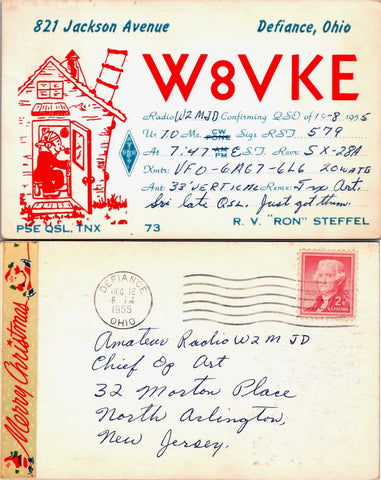 821 Jackson Avenue Defiance, Ohio
W8VKE
Radio W2MJD Confirming QSO of 10-8 1955
Ur 7.0 Mc. CW FONE Sigs RST 579
At 7:47 AM PM E.S.T. Rcvr: SX-28A
Xmtr: VFO-6AG7-6L6 20 watts
Ant: 33' VERTICAL Remx: Tnx Art.
Sri late QSL. Just got them.
PSE QSL, TNX 73 R. V. "RON" STEFFEL
Merry Christmas
DEFIANCE
DEC 12
PM
1955
OHIO
2¢
Amateur Radio W2MJD
Chief Op Art
32 Morton Place
North Arlington,
New Jersey.